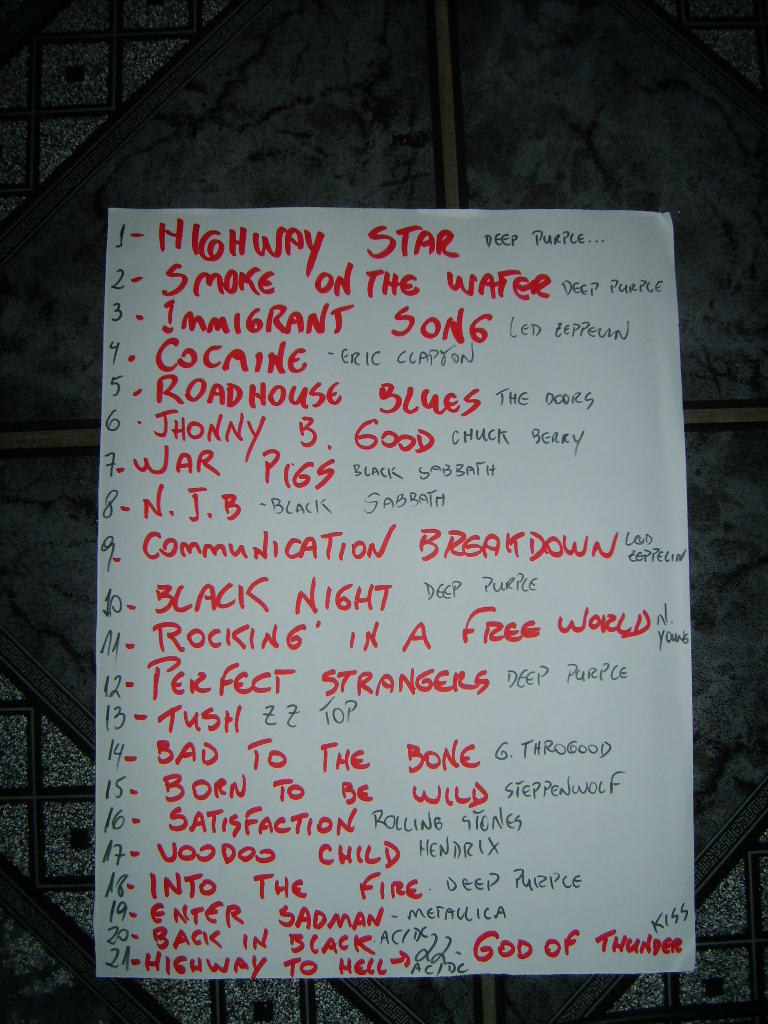 1- HIGHWAY STAR DEEP PURPLE...
2- SMOKE ON THE WATER DEEP PURPLE
3- IMMIGRANT SONG LED ZEPPELIN
4. COCAINE - ERIC CLAPTON
5. ROADHOUSE BLUES THE DOORS
6. JHONNY B. GOOD CHUCK BERRY
7- WAR PIGS BLACK SABBATH
8- N.J.B - BLACK SABBATH
9- COMMUNICATION BREAKDOWN LED ZEPPELIN
10- BLACK NIGHT DEEP PURPLE
11- ROCKING' IN A FREE WORLD N. YOUNG
12- PERFECT STRANGERS DEEP PURPLE
13- TUSH ZZ TOP
14- BAD TO THE BONE G. THROGOOD
15- BORN TO BE WILD STEPPENWOLF
16- SATISFACTION ROLLING STONES
17- VOODOO CHILD HENDRIX
18- INTO THE FIRE. DEEP PURPLE
19- ENTER SADMAN - METALLICA
20- BACK IN BLACK AC/DC
21- HIGHWAY TO HELL → AC/DC
22- GOD OF THUNDER KISS